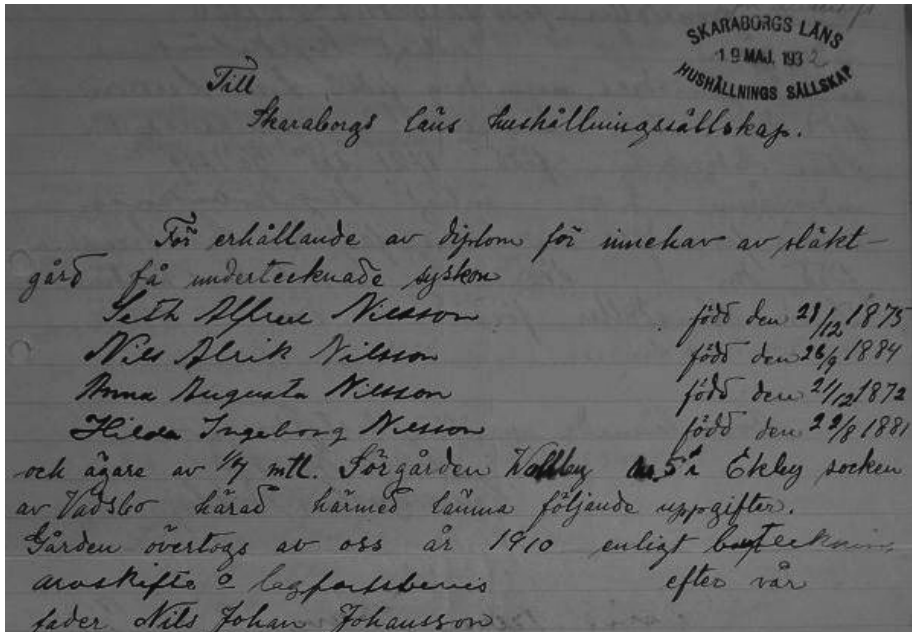 SKARABORGS LÄNS
19 MAJ. 1932
HUSHÅLLNINGS SÄLLSKAP
Till
Skaraborgs läns hushållningssällskap.
För erhållande av diplom för innehav av släkt-
gård få undertecknade syskon
Seth Alfred Nilsson född den 28/12 1875
Nils Alrik Nilsson född den 26/9 1884
Anna Augusta Nilsson född den 21/12 1872
Hilda Ingeborg Nilsson född den 22/8 1881
och ägare av mtl. Sörgården 5 i Ekby socken
av Vadsbo härad härmed lämna följande uppgifter.
Gården övertogs av oss år 1910 enligt
arvskifte o lagfartsbevis efter vår
fader Nils Johan Johansson